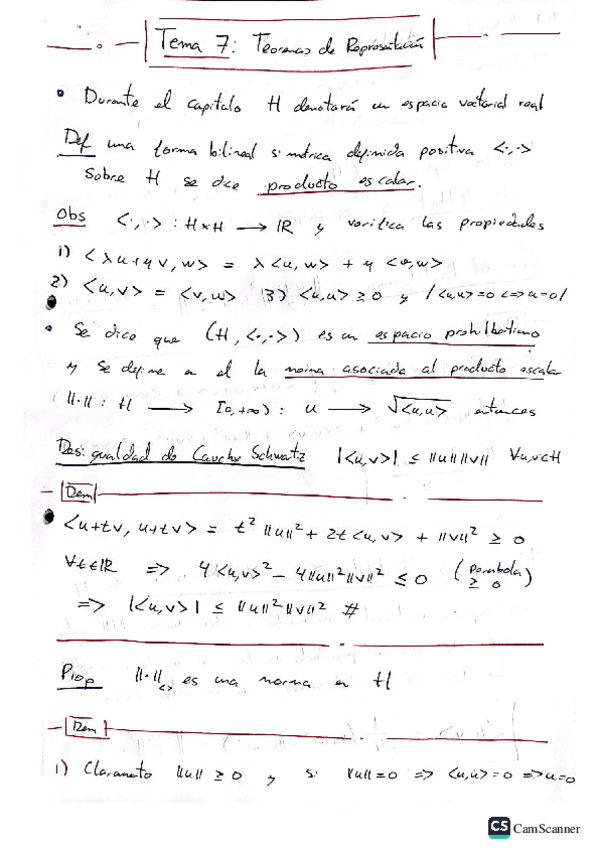 Tema 7: Teoremas de Representación
• Durante el capitulo H denotará un espacio vectorial real
Def una forma bilineal simétrica definida positiva <·,·>
Sobre H se dice producto escalar.
Obs <·,·> : H×H → IR y verifica las propiedades
1) <λu+μv, w> = λ<u,w> + μ<v,w>
2) <u,v> = <v,u> 3) <u,u> ≥ 0 y /<u,u>=0 <=> u=0/
• Se dice que (H, <·,·>) es un espacio prehilbertiano
y se define en el la norma asociada al producto escalar
||·|| : H → [0,+∞) : u → √<u,u> entonces
Desigualdad de Cauchy Schwartz |<u,v>| ≤ ||u|| ||v|| ∀u,v∈H
Dem
<u+tv, u+tv> = t² ||u||² + 2t<u,v> + ||v||² ≥ 0
∀t∈IR => 4<u,v>² - 4||u||²||v||² ≤ 0 (Parabola ≥ 0)
=> |<u,v>| ≤ ||u||²||v||² #
Prop ||·||<> es una norma en H
Dem
1) Claramente ||u|| ≥ 0 y si ||u||=0 => <u,u>=0 => u=0
CS CamScanner